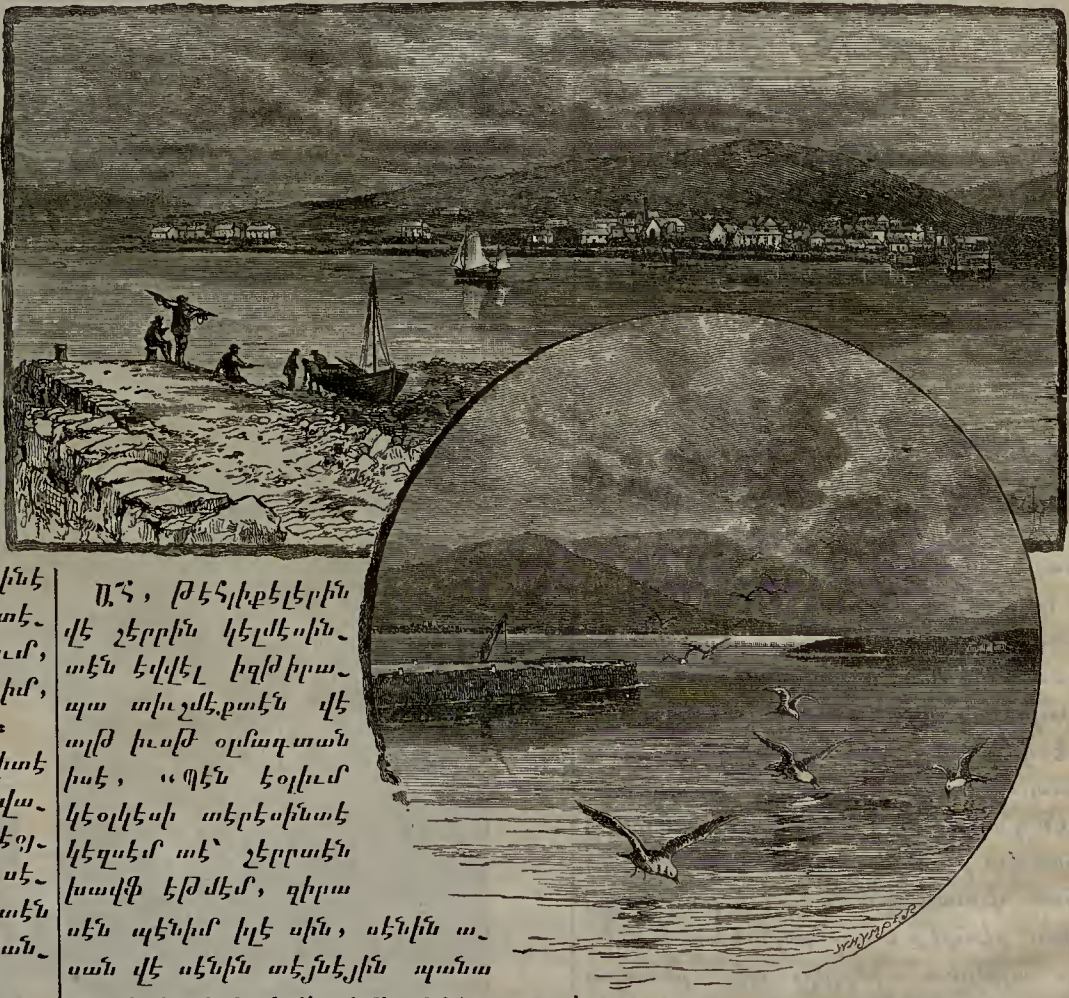 WHYMPER
ինէ
տէ֊
ւմ,
իմ,
վա֊
էօլ֊
սէ֊
տէն
ան֊
Ա՜հ, թէհլիքէլէրին
վէ շէրրին կէլմէսին֊
տէն էվվէլ իզթիրա֊
պա տիւշմէքտէն վէ
ալթ իւսթ օլմագտան
իսէ, «Պէն էօլիւմ
կէօլկէսի տէրէսինտէ
կէզսէմ տէ՝ շէրրտէն
խավֆ էթմէմ, զիրա
սէն պէնիմ իլէ սին, սէնին ա֊
սան վէ սէնին տէյնէյին պանա